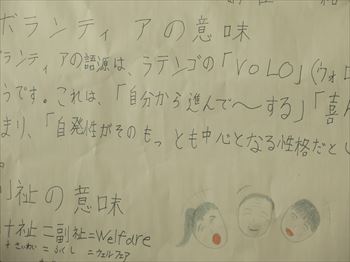 ボランティアの意味
ランティアの語源は、ラテンゴの「VOLO」(ウォロ
うです。これは、「自分から進んで〜する」「喜ん
まり、「自発性がそのもっとも中心となる性格だとし
祉の意味
祉=副祉=Welfare
さいわい=ふくし=ウェルフェア